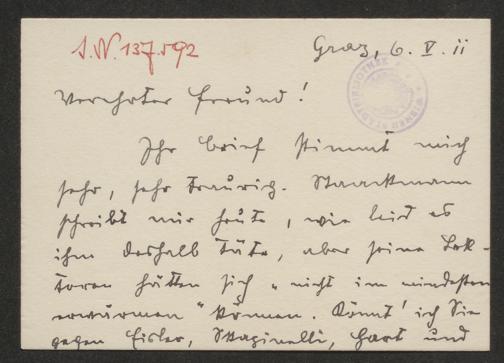 J. N. 137.592
Graz, 6. V. 11
WIENER STADTBIBLIOTHEK
Verehrter Freund!
Ihr Brief stimmt mich
sehr, sehr traurig. Staackmann
schreibt mir heute, wie leid es
ihm deshalb täte, aber seine Lek-
toren hätten sich „nicht im mindesten
erwärmen" können. Könnt' ich Sie
gegen Eisler, Skapinelli, Hart und